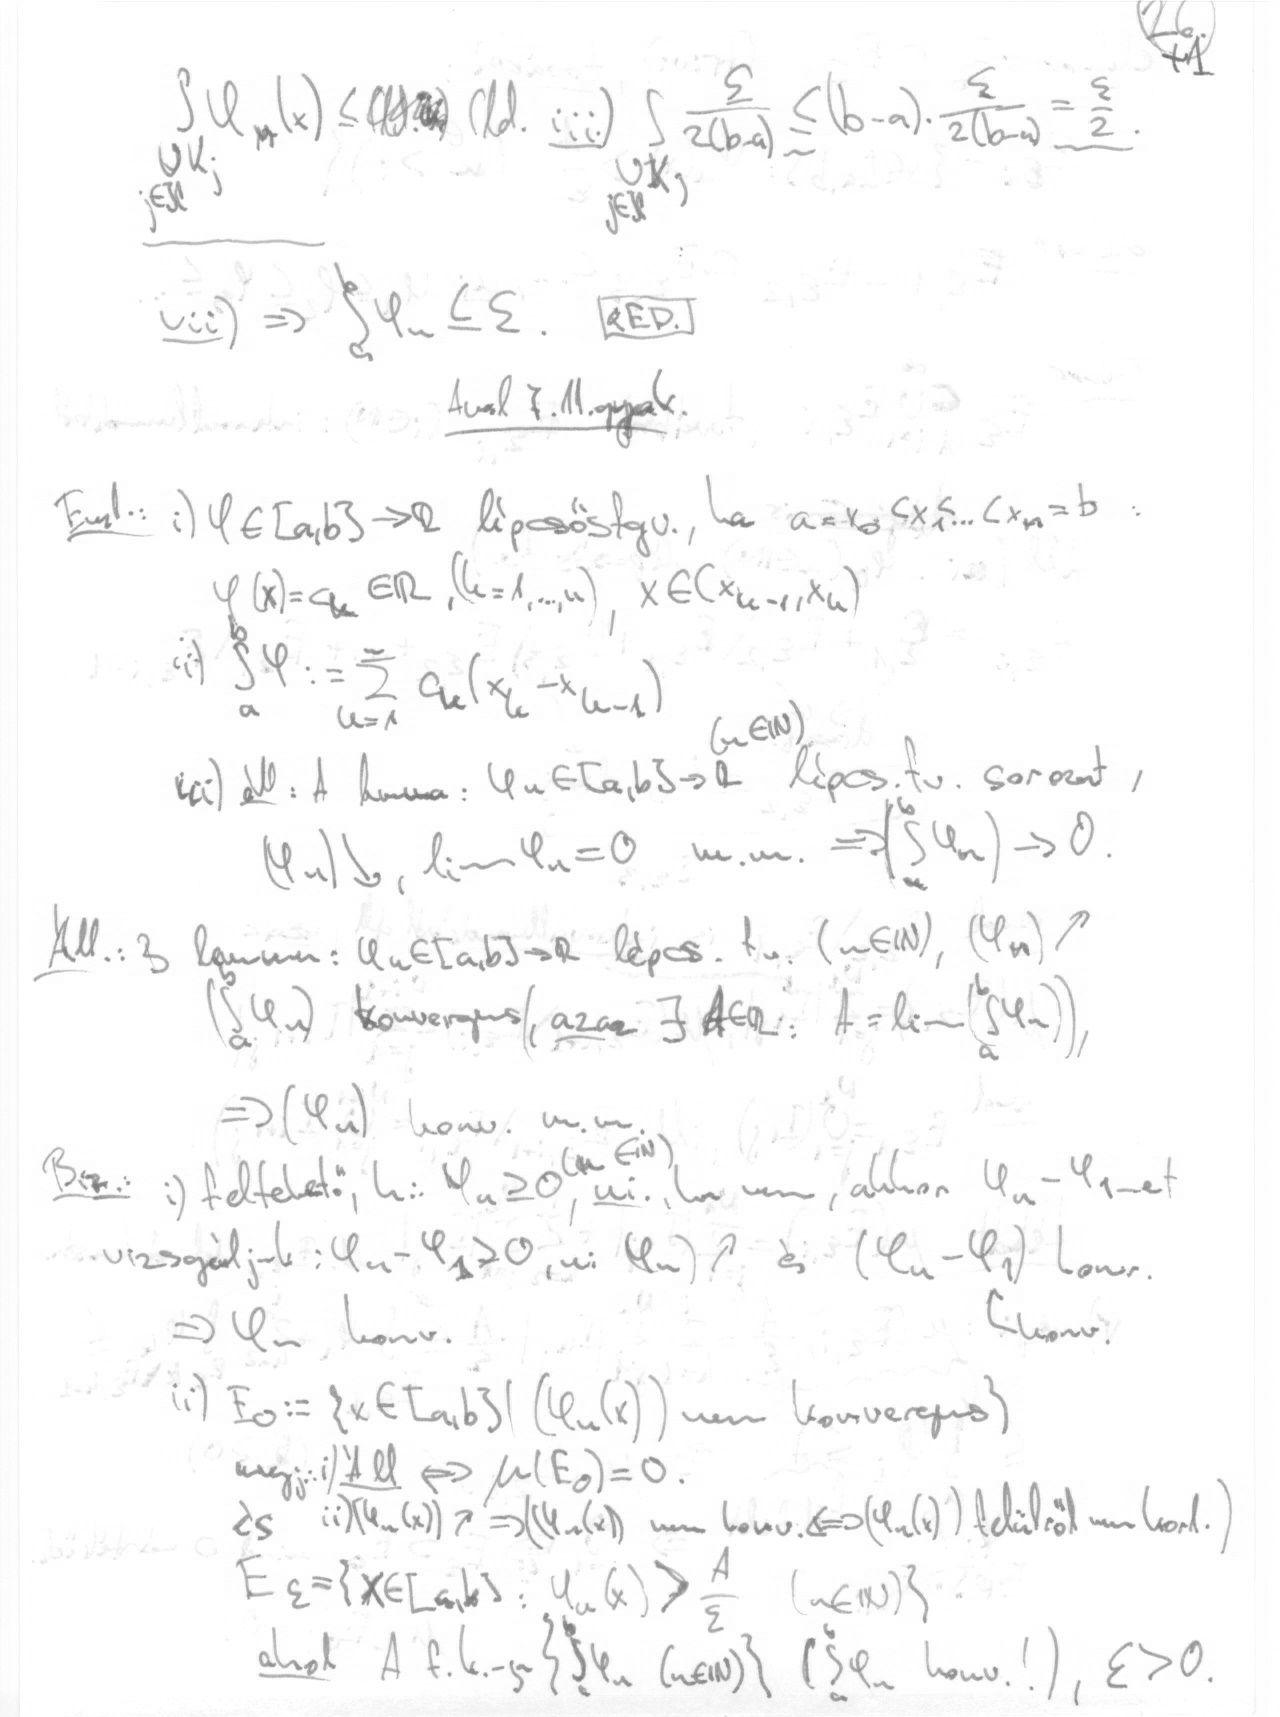 26.
+1
∫_{∪K_j, j∈H} φ_n(x) ≤ (ld. iii) ∫_{∪K_j, j∈H} ε/(2(b-a)) ≤ (b-a)·ε/(2(b-a)) = ε/2.
vii) ⇒ ∫_a^b φ_n ≤ ε. QED.
Anal 7. M. gyak.
Eml.: i) φ∈[a,b]→ℝ lépcsősfgv., ha a=x_0<x_1<...<x_n=b :
φ(x)=c_k ∈ℝ, (k=1,...,n), x∈(x_{k-1},x_k)
ii) ∫_a^b φ := Σ_{k=1}^n c_k(x_k-x_{k-1})
iii) áll: A lemma: φ_n∈[a,b]→ℝ (n∈ℕ) lépcs. fv. sorozat,
(φ_n)↘, lim φ_n=0 m.m. ⇒ (∫_a^b φ_n) → 0.
Áll.: B lemma: φ_n∈[a,b]→ℝ lépcs. fv. (n∈ℕ), (φ_n)↗
(∫_a^b φ_n) konvergens (, azaz ∃ A∈ℝ: A = lim(∫_a^b φ_n)),
⇒ (φ_n) konv. m.m.
Biz.: i) feltehető, h.: φ_n≥0 (n∈ℕ), ui., ha nem, akkor φ_n-φ_1-et
vizsgáljuk: φ_n-φ_1≥0, ui (φ_n)↗ és (φ_n-φ_1) konv.
⇒ φ_n konv. konv.
ii) E_0:={x∈[a,b] | (φ_n(x)) nem konvergens}
megj.: i) Áll ⇔ μ(E_0)=0.
és ii) (φ_n(x))↗ ⇒ ((φ_n(x)) nem konv. ⇔ (φ_n(x)) felülről nem korl.)
E_ε={x∈[a,b]: φ_n(x) > A/ε (n∈ℕ)}
ahol A f.k.-ja {∫_a^b φ_n (n∈ℕ)} (∫_a^b φ_n konv.!), ε>0.